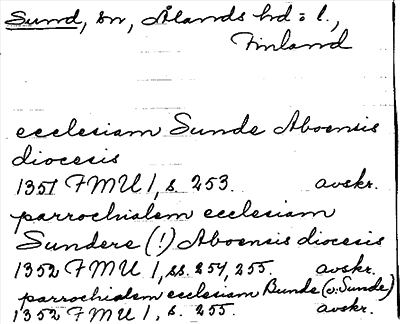 Sund, sn, Ålands hd:l.,
Finland
ecclesiam Sunde Aboensis
diocesis
1351 FMU 1, s. 253. avskr.
parrochialem ecclesiam
Sundere (!) Aboensis diocesis
1352 FMU 1, ss. 254, 255. avskr.
parrochialem ecclesiam Bunde (o: Sunde)
1352 FMU 1, s. 255. avskr.